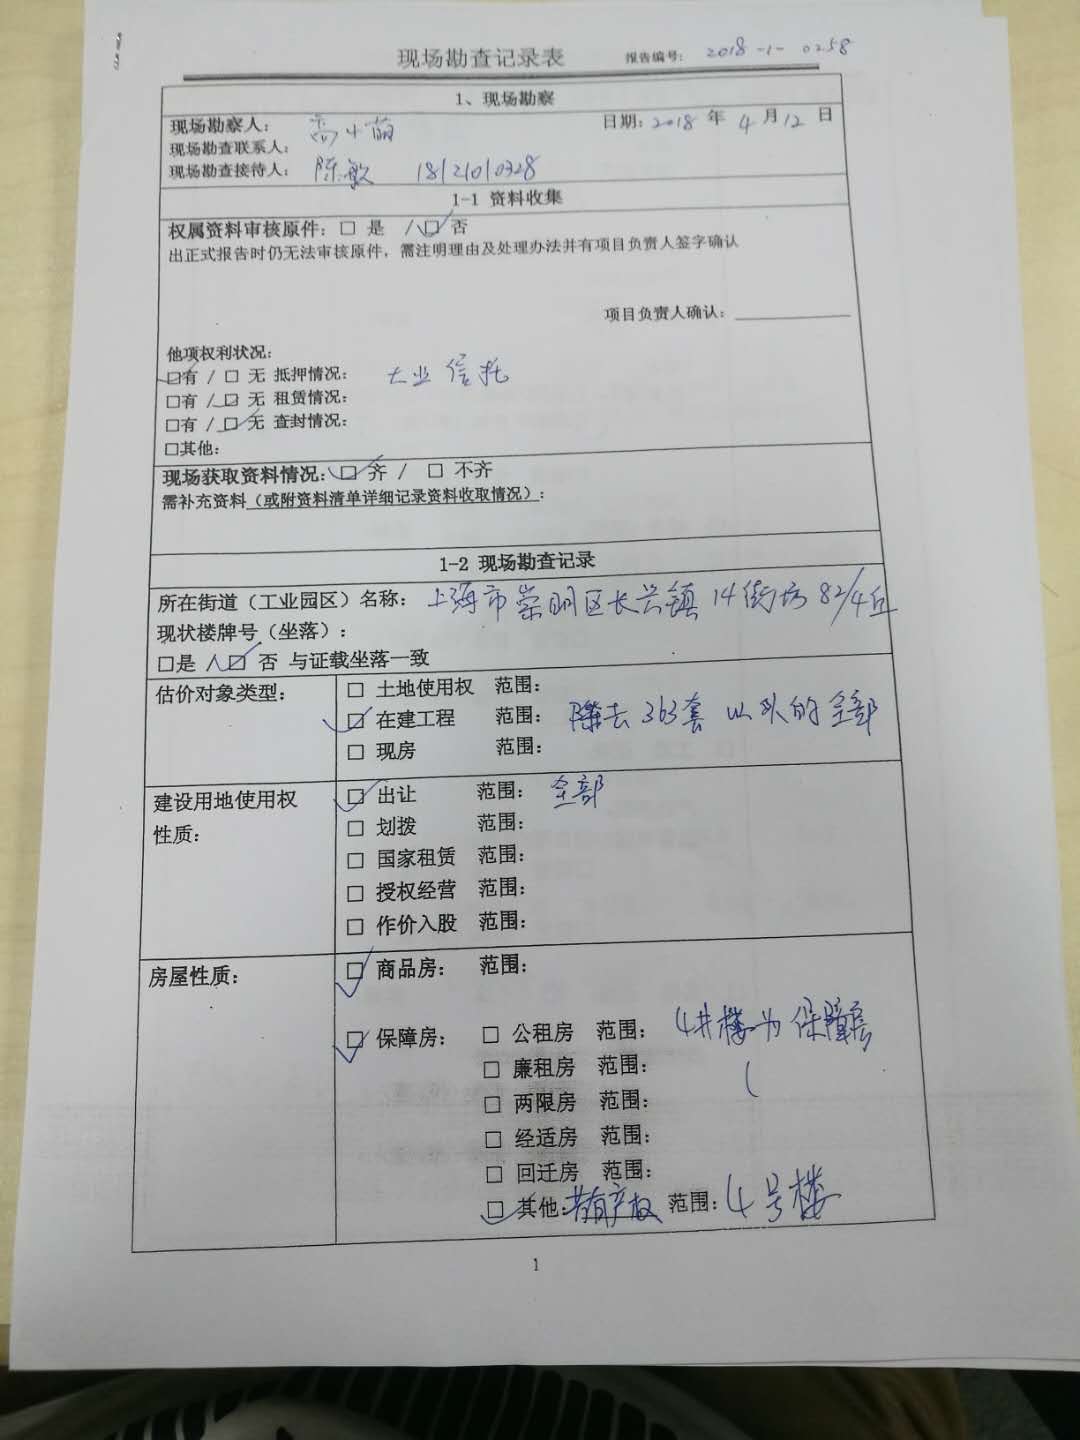 现场勘查记录表 报告编号: 2018-1-0258
1、现场勘察
现场勘察人: 高小萌 日期: 2018 年 4 月 12 日
现场勘查联系人:
现场勘查接待人: 陈敏 18121010328
1-1 资料收集
权属资料审核原件: □ 是 / ☑ 否
出正式报告时仍无法审核原件, 需注明理由及处理办法并有项目负责人签字确认
项目负责人确认:
他项权利状况:
☑有 / □ 无 抵押情况: 大业信托
□有 / ☑ 无 租赁情况:
□有 / ☑ 无 查封情况:
□其他:
现场获取资料情况: ☑ 齐 / □ 不齐
需补充资料(或附资料清单详细记录资料收取情况):
1-2 现场勘查记录
所在街道(工业园区)名称: 上海市崇明区长兴镇 14街坊 82/4丘
现状楼牌号(坐落):
□是 / ☑ 否 与证载坐落一致
估价对象类型: □ 土地使用权 范围:
☑ 在建工程 范围: 除去 363套 以外的全部
□ 现房 范围:
建设用地使用权 ☑ 出让 范围: 全部
性质: □ 划拨 范围:
□ 国家租赁 范围:
□ 授权经营 范围:
□ 作价入股 范围:
房屋性质: ☑ 商品房: 范围:
☑ 保障房: □ 公租房 范围: 4#楼为保障房
□ 廉租房 范围:
□ 两限房 范围:
□ 经适房 范围:
□ 回迁房 范围:
☑ 其他: 共有产权 范围: 4号楼
1